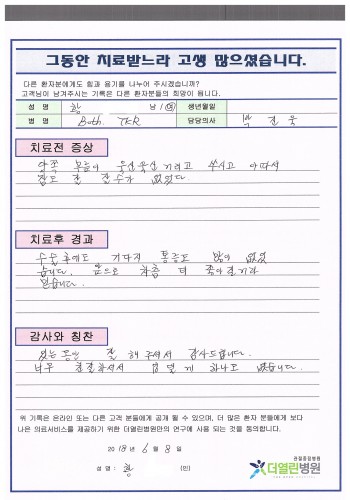 그동안 치료받느라 고생 많으셨습니다.
다른 환자분에게도 힘과 용기를 나누어 주시겠습니까?
고객님이 남겨주시는 기록은 다른 환자분들의 희망이 됩니다.
성 명 황 남 / 여 생년월일
병 명 Both TKR 담당의사 박
치료전 증상
양쪽 무릎이 우신욱신 거리고 쑤시고 아파서
잠도 잘 잘수가 없었다
치료후 경과
수술후에도 기다지 통증도 많이 없었
습니다. 앞으로 차츰 더 좋아 지리라
믿습니다.
감사와 칭찬
있는동안 잘 해주셔서 감사드립니다.
너무 친절하셔서 하나도 없습니다.
위 기록은 온라인 또는 다른 고객 분들에게 공개 될 수 있으며, 더 많은 환자 분들에게 보다
나은 의료서비스를 제공하기 위한 더열린병원만의 연구에 사용 되는 것을 동의합니다.
2018 년 6 월 8 일
성 명 : 황 (인)
관절중점병원
더열린병원